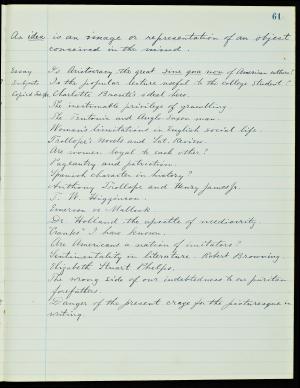 61
As idea is an image or representation of an object
conceived in the mind.
Essay Is Aristocracy the great sine qua non of American culture?
Subjects Is the popular lecture useful to the college student?
Charlotte Brontë's ideal hero.
The inestimable privilege of grumbling
The Teutonic and Anglo Saxon man.
Woman's limitations in English social life.
Trollope's Novels and Sat. Review.
Are women loyal to each other?
Pageantry and patriotism.
Spanish character in history?
Anthony Trollope and Henry James Jr.
T. W. Higginson.
Emerson vs Mallock.
Dr. Holland the apostle of mediocrity.
"Cranks" I have known.
Are Americans a nation of imitators?
Sentimentality in literature. Robert Browning.
Elizabeth Stuart Phelps.
The wrong side of our indebtedness to our puritan
forefathers.
Danger of the present craze for the picturesque in
writing.